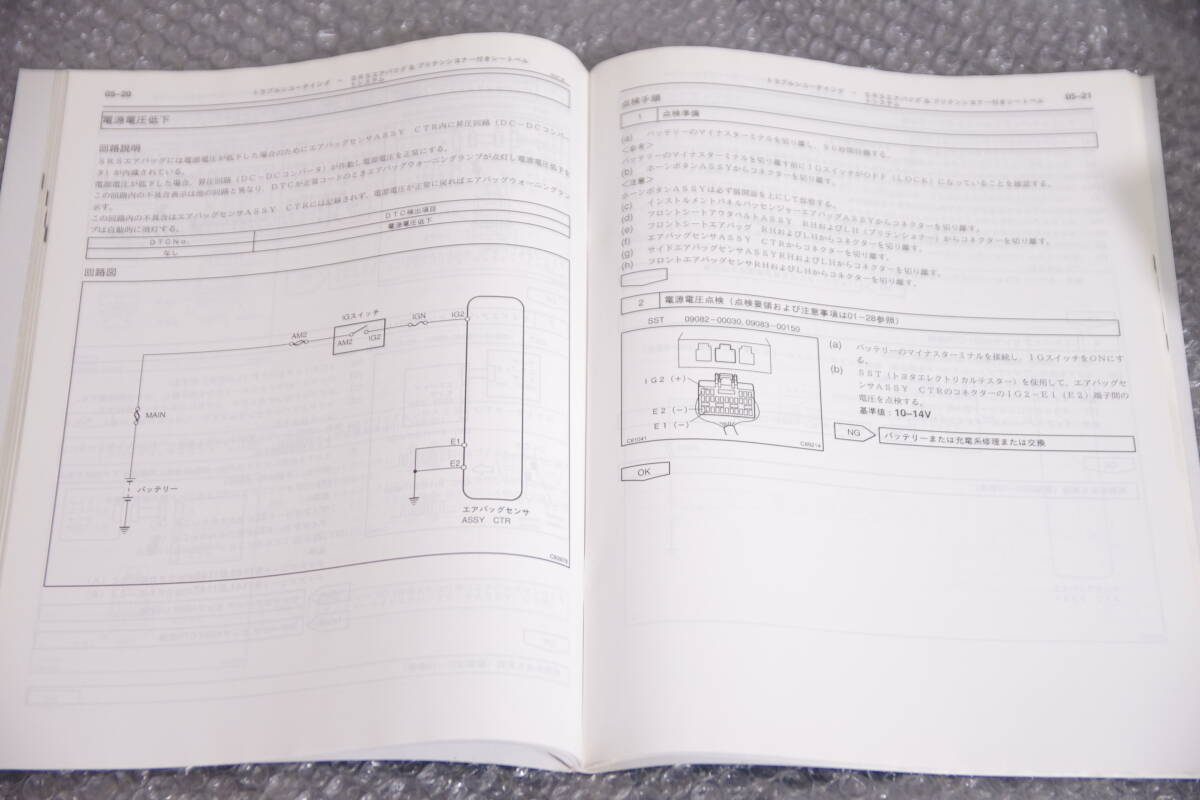 05-20
トラブルシューティング － SRSエアバッグ & プリテンショナー付きシートベル
トシステム
電源電圧低下
回路説明
SRSエアバッグには電源電圧が低下した場合のためにエアバッグセンサASSY CTR内に昇圧回路(DC-DCコンバー
タ)が内蔵されている。
電源電圧が低下した場合、昇圧回路(DC-DCコンバータ)が作動し電源電圧を正常にする。
この回路内の不具合表示は他の回路と異なり、DTCが正常コードのときエアバッグウォーニングランプが点灯し電源電圧低下を
示す。
この回路内の不具合はエアバッグセンサASSY CTRには記録されず、電源電圧が正常に戻ればエアバッグウォーニングラン
プは自動的に消灯する。
DTCNo. DTC検出項目
なし 電源電圧低下
回路図
IGスイッチ
AM2
AM2 IG2
IGN
IG2
MAIN
E1
E2
バッテリー
エアバッグセンサ
ASSY CTR
トラブルシューティング － SRSエアバッグ & プリテンショナー付きシートベル
トシステム
05-21
点検手順
1 点検準備
(a) バッテリーのマイナスターミナルを切り離し、90秒間待機する。
<参考>
バッテリーのマイナスターミナルを切り離す前にIGスイッチがOFF(LOCK)になっていることを確認する。
(b) ホーンボタンASSYからコネクターを切り離す。
<注意>
ホーンボタンASSYは必ず展開面を上にして保管する。
(c) インストルメントパネルパッセンジャーエアバッグASSYからコネクターを切り離す。
(d) フロントシートアウタベルトASSY RHおよびLH(プリテンショナー)からコネクターを切り離す。
(e) フロントシートエアバッグ RHおよびLHからコネクターを切り離す。
(f) エアバッグセンサASSY CTRからコネクターを切り離す。
(g) サイドエアバッグセンサASSYRHおよびLHからコネクターを切り離す。
(h) フロントエアバッグセンサRHおよびLHからコネクターを切り離す。
2 電源電圧点検(点検要領および注意事項は01-28参照)
SST 09082-00030, 09083-00150
IG2(+)
E2(-)
E1(-)
C61041
C69214
(a) バッテリーのマイナスターミナルを接続し、IGスイッチをONにす
る。
(b) SST(トヨタエレクトリカルテスター)を使用して、エアバッグセ
ンサASSY CTRのコネクターのIG2-E1(E2)端子間の
電圧を点検する。
基準値：10-14V
NG バッテリーまたは充電系修理または交換
OK